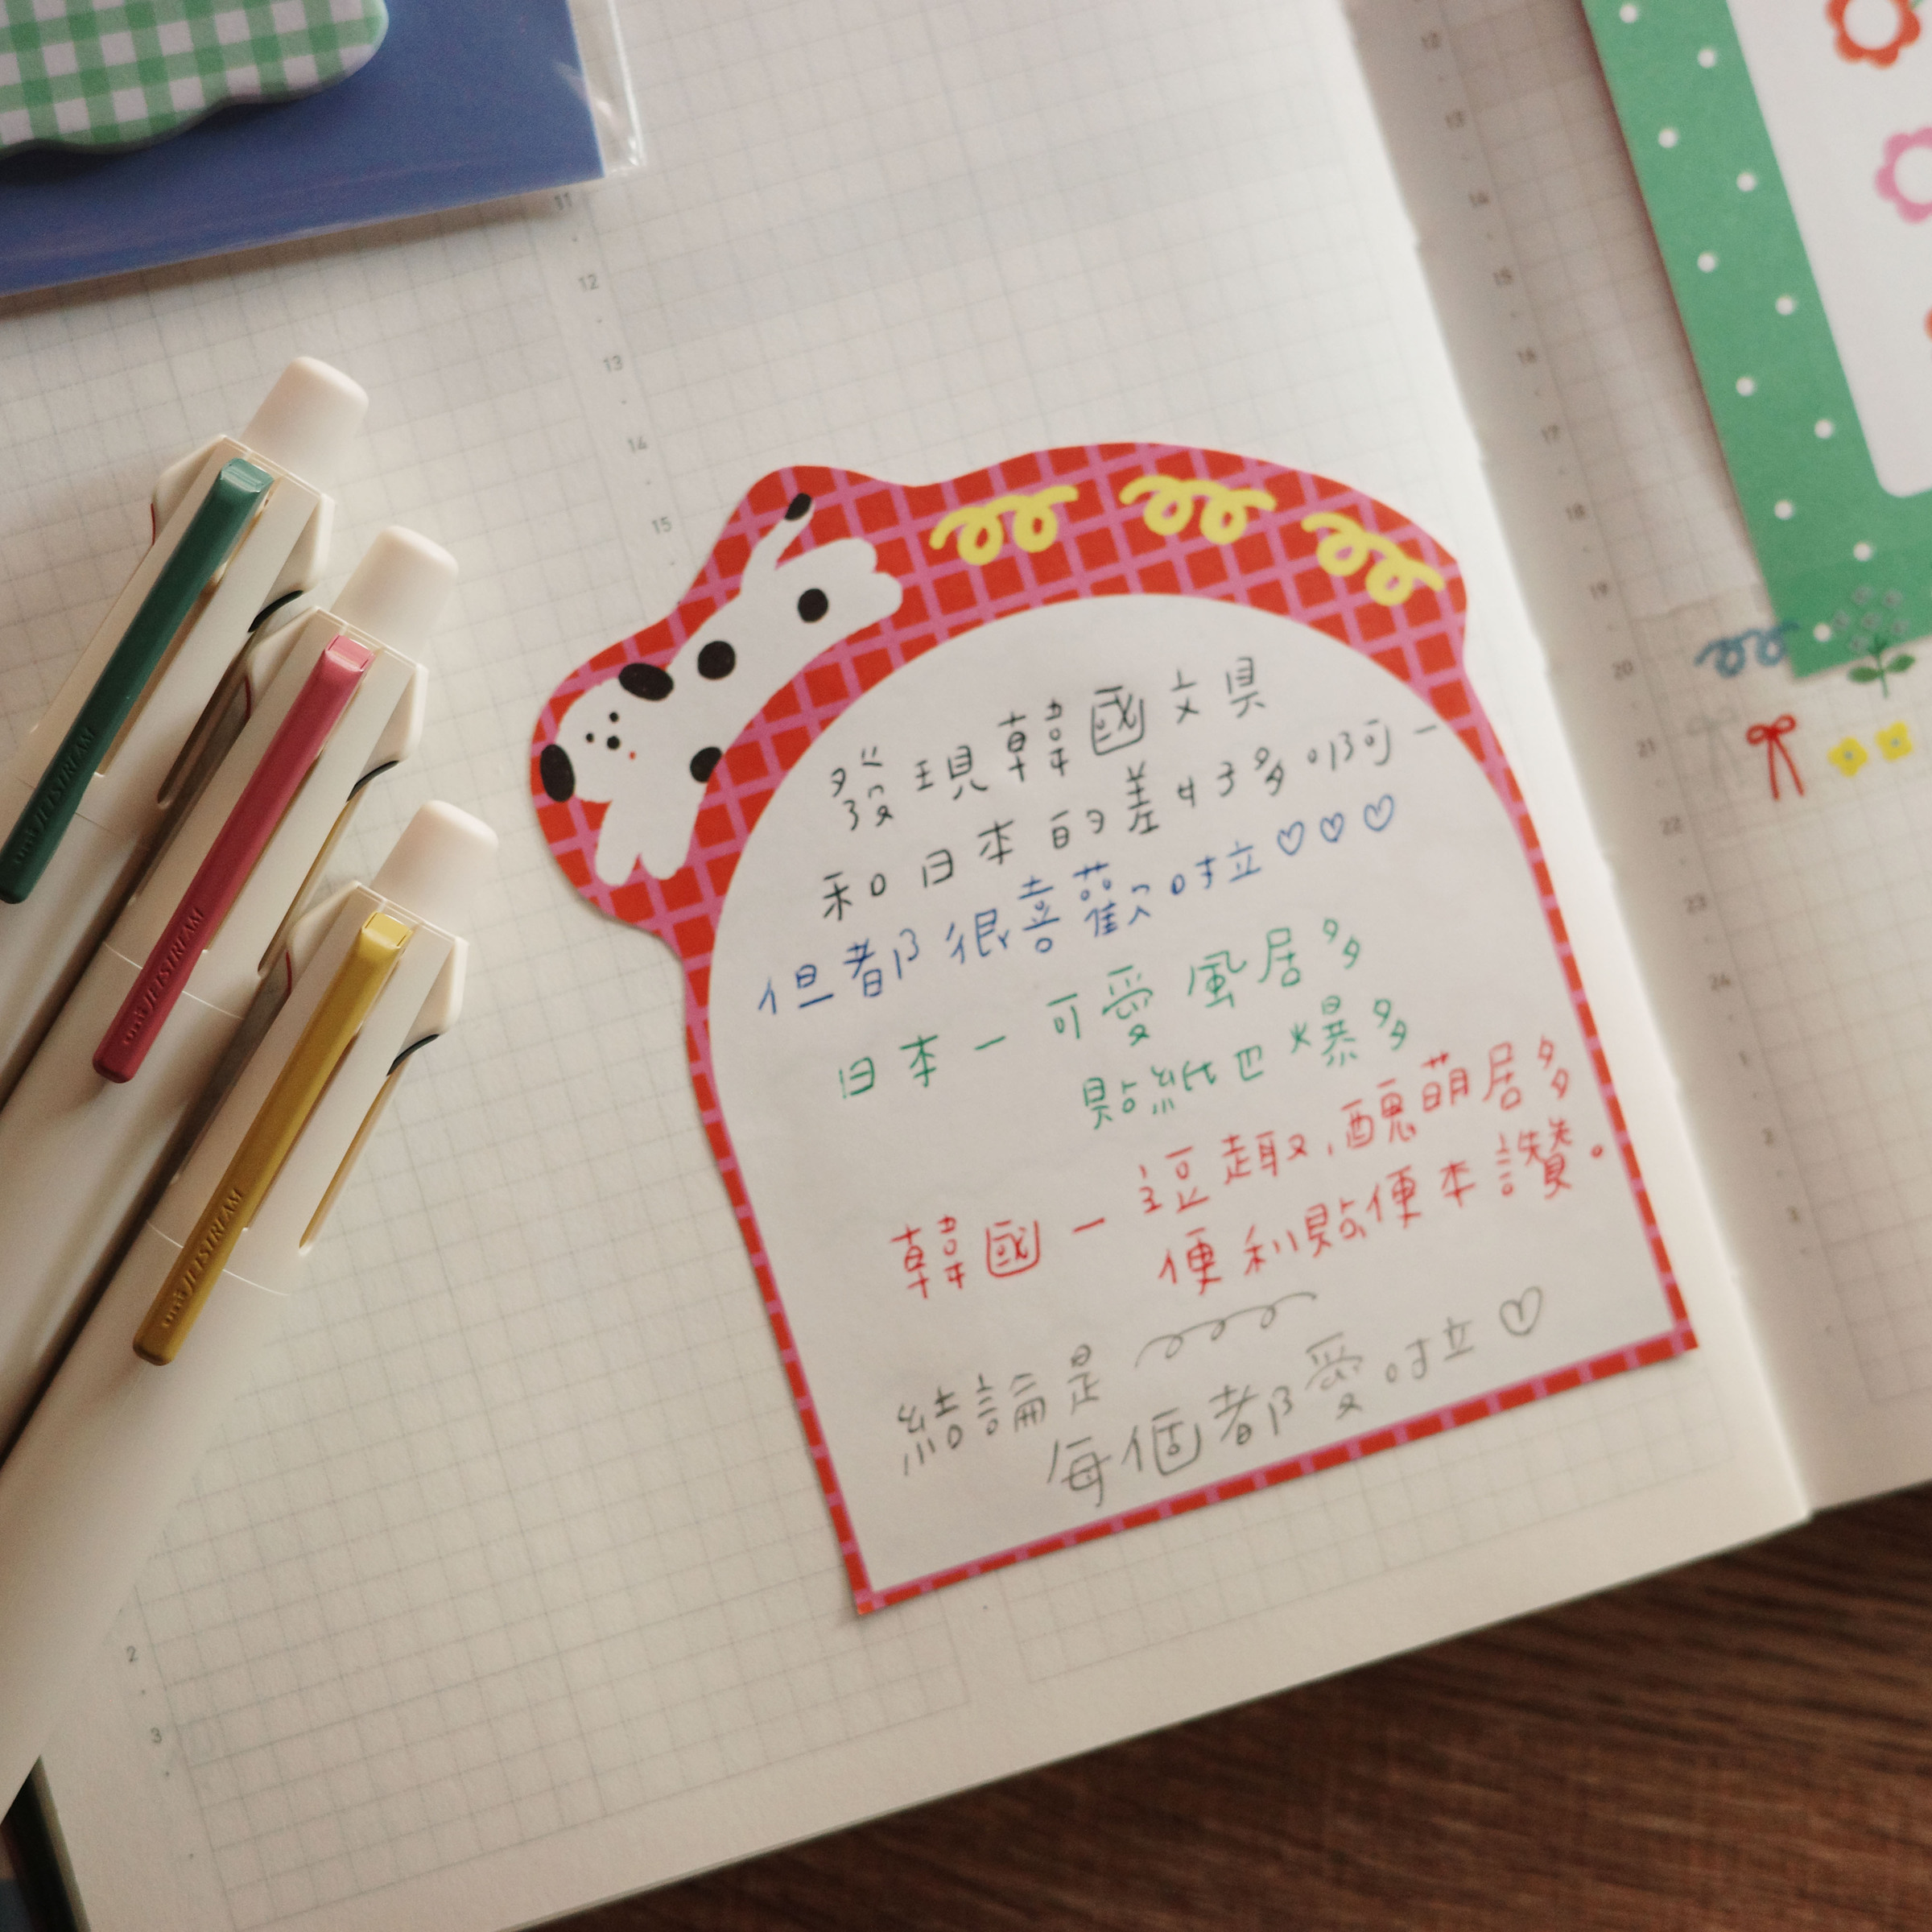 發現韓國文具
和日本的差好多啊－
但都很喜歡啦♡♡♡
日本－可愛風居多
貼紙也爆多
韓國－逗趣,醜萌居多
便利貼便本讚。
結論是
每個都愛啦♡
uni JETSTREAM
uni JETSTREAM
uni JETSTREAM
11
12
13
14
15
2
3
12
13
14
15
16
17
18
19
20
21
22
23
24
1
2
3